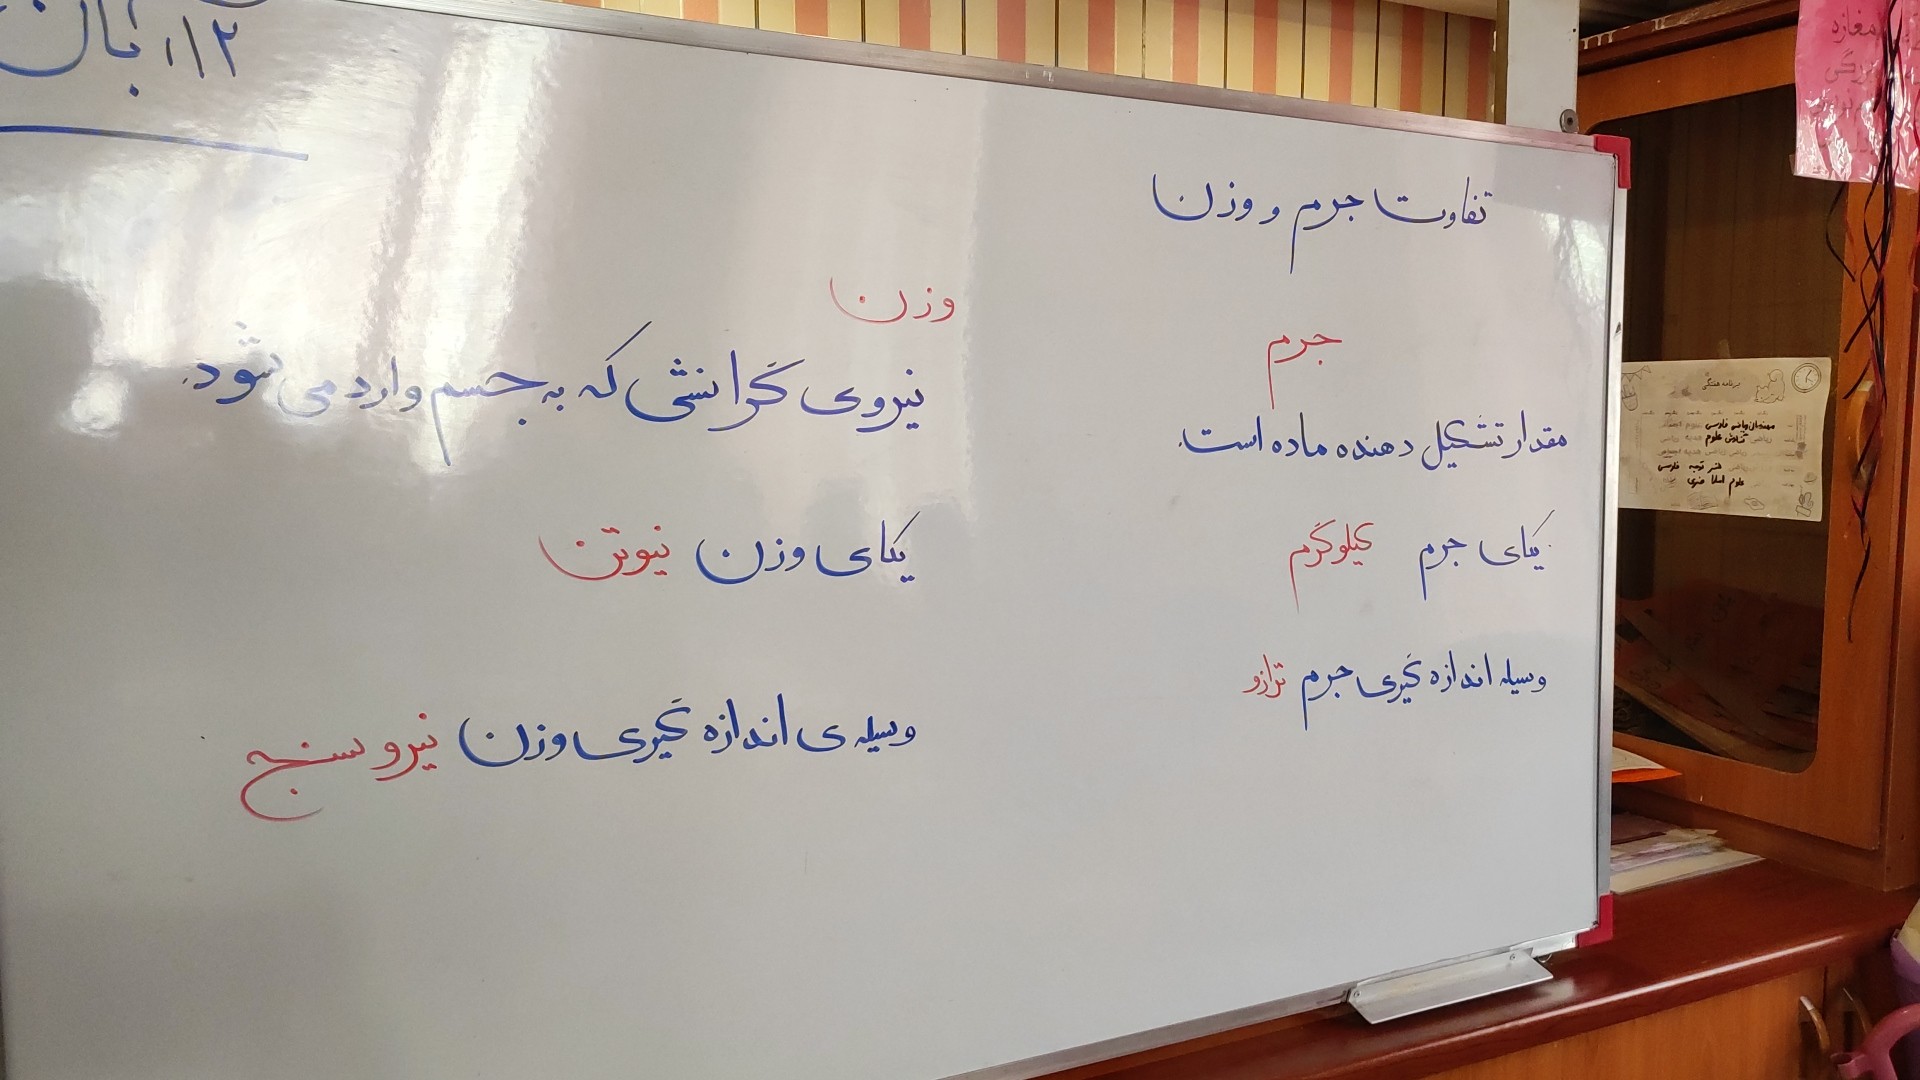 ۱۲، آبان
تفاوت جرم و وزن
جرم
مقدار تشکیل دهنده ماده است.
یکای جرم کیلوگرم
وسیله اندازه گیری جرم ترازو
وزن
نیروی گرانشی که به جسم وارد می شود.
یکای وزن نیوتن
وسیله ی اندازه گیری وزن نیرو سنج
مغازه
برنامه هفتگی